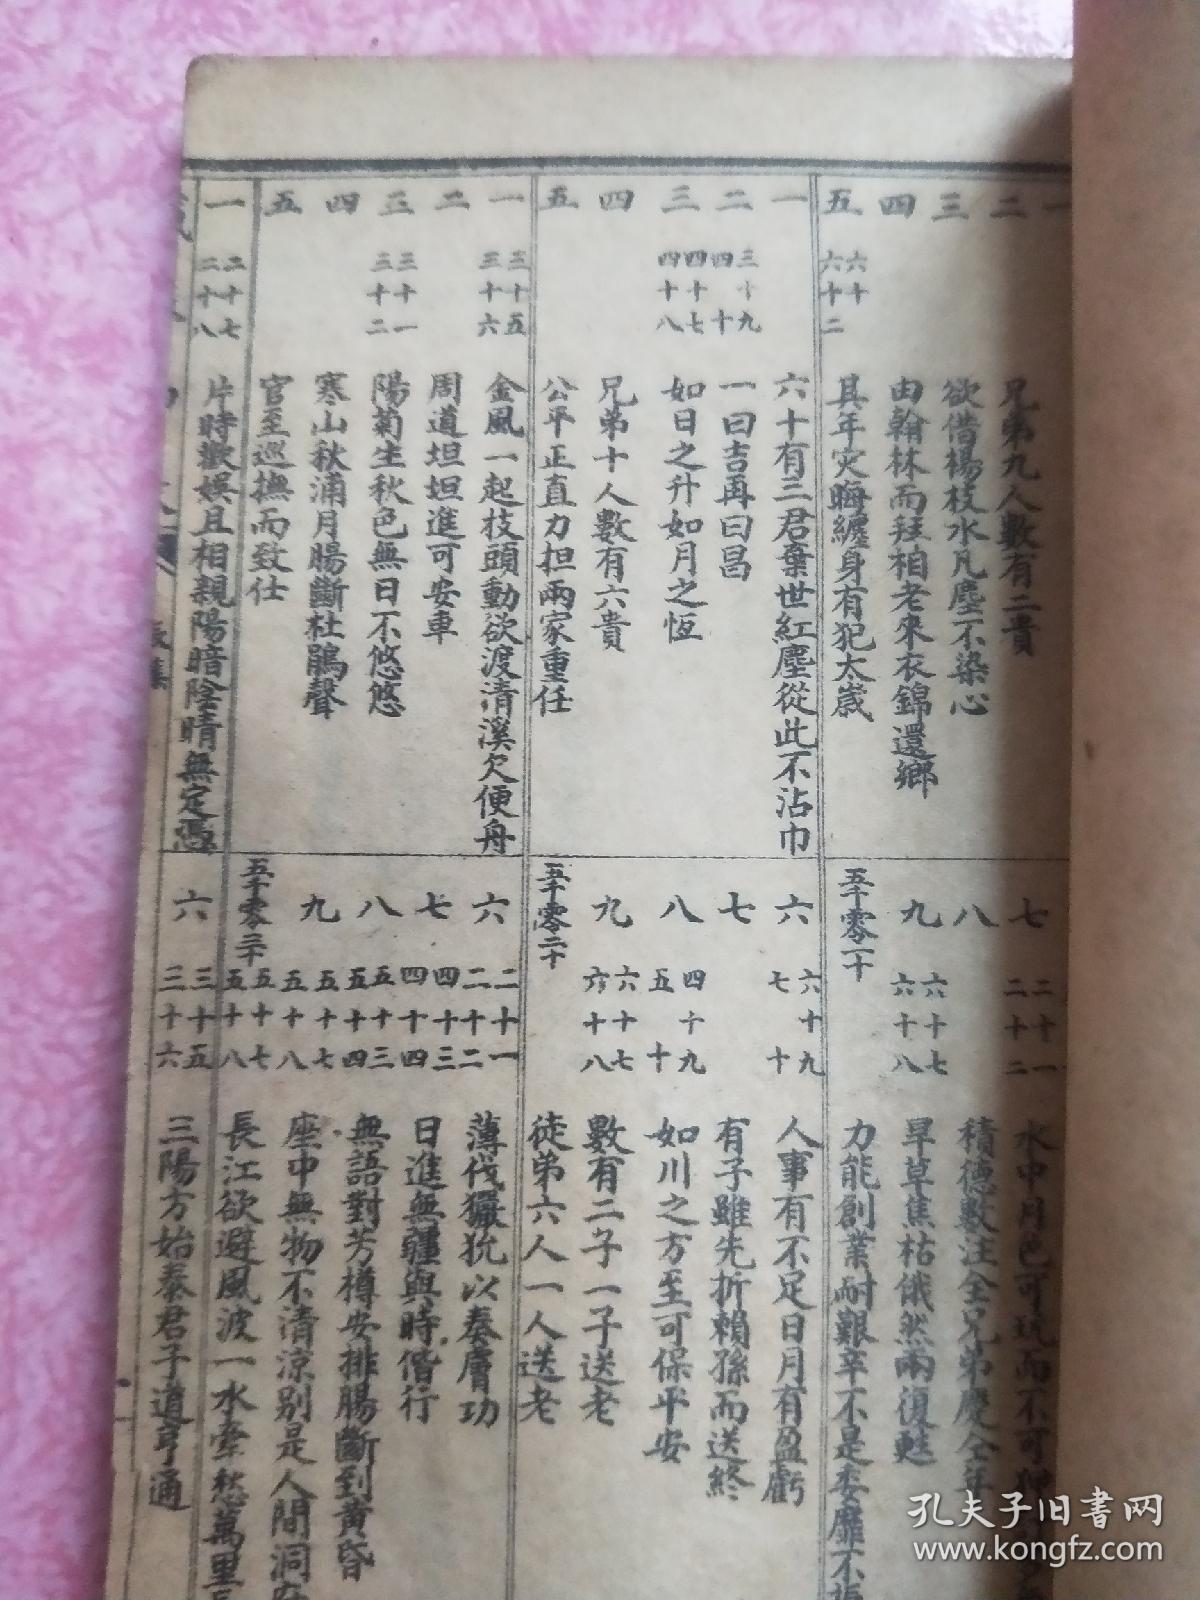 一
二 兄弟九人數有二貴
三 欲借楊枝水凡塵不染心
四 由翰林而拜相老來衣錦還鄉
五 六十 六十二 其年灾晦纏身有犯太歲
七 二十一 二十二 水中月色可玩而不可
八 積德數注全兄弟慶全年
九 六十七 六十八 旱草焦枯俄然雨復甦
五千零一十 力能創業耐艱辛不是委靡不振
一 六十有三君棄世紅塵從此不沾巾
二 三十九 四十 一曰吉再曰昌
三 四十七 四十八 如日之升如月之恆
四 兄弟十人數有六貴
五 公平正直力担兩家重任
六 六十九 七十 人事有不足日月有盈虧
七 有子雖先折賴孫而送終
八 四十九 五十 如川之方至可保平安
九 六十七 六十八 數有二子一子送老
五千零二十 徒弟六人一人送老
一 三十五 三十六 金風一起枝頭動欲渡清溪欠便舟
二 周道坦坦進可安車
三 三十一 三十二 陽菊生秋色無日不悠悠
四 寒山秋浦月腸斷杜鵑聲
五 官至巡撫而致仕
六 二十一 二十二 薄伐玁狁以奏膚功
七 四十三 四十四 日進無疆與時偕行
八 五十三 五十四 無語對芳樽安排腸斷到黃昏
九 五十七 五十八 座中無物不清涼別是人間洞
五千零三十 五十七 五十八 長江欲避風波一水牽愁萬里
一 二十七 二十八 片時歡娛且相親陽暗陰晴無定憑
六 三十五 三十六 三陽方始泰君子道亨通
孔夫子旧书网
www.kongfz.com